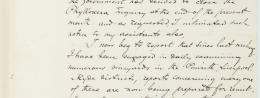 the Government had decided to close the
Phylloxera Inquiry at the end of the present
month and as requested I intimated such
notice to my assistants also.
I now beg to report that since last
I have been engaged in daily examining
numerous vineyards in the Liverpool
Ryde districts, reports concerning every one
of these are now being prepared for